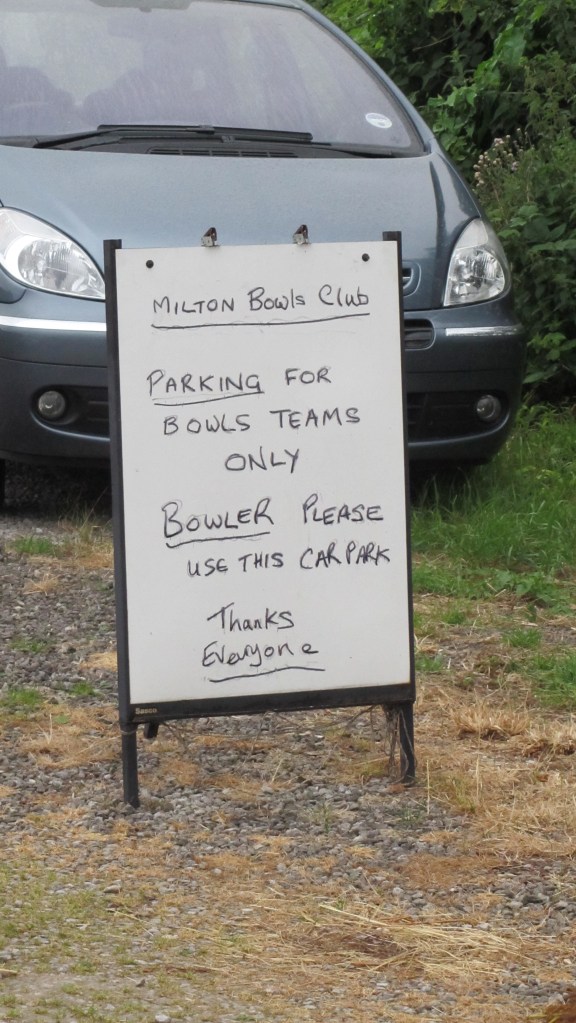 MILTON BOWLS Club
PARKING FOR
BOWLS TEAMS
ONLY
BOWLER PLEASE
USE THIS CAR PARK
Thanks
Everyone
Sasco